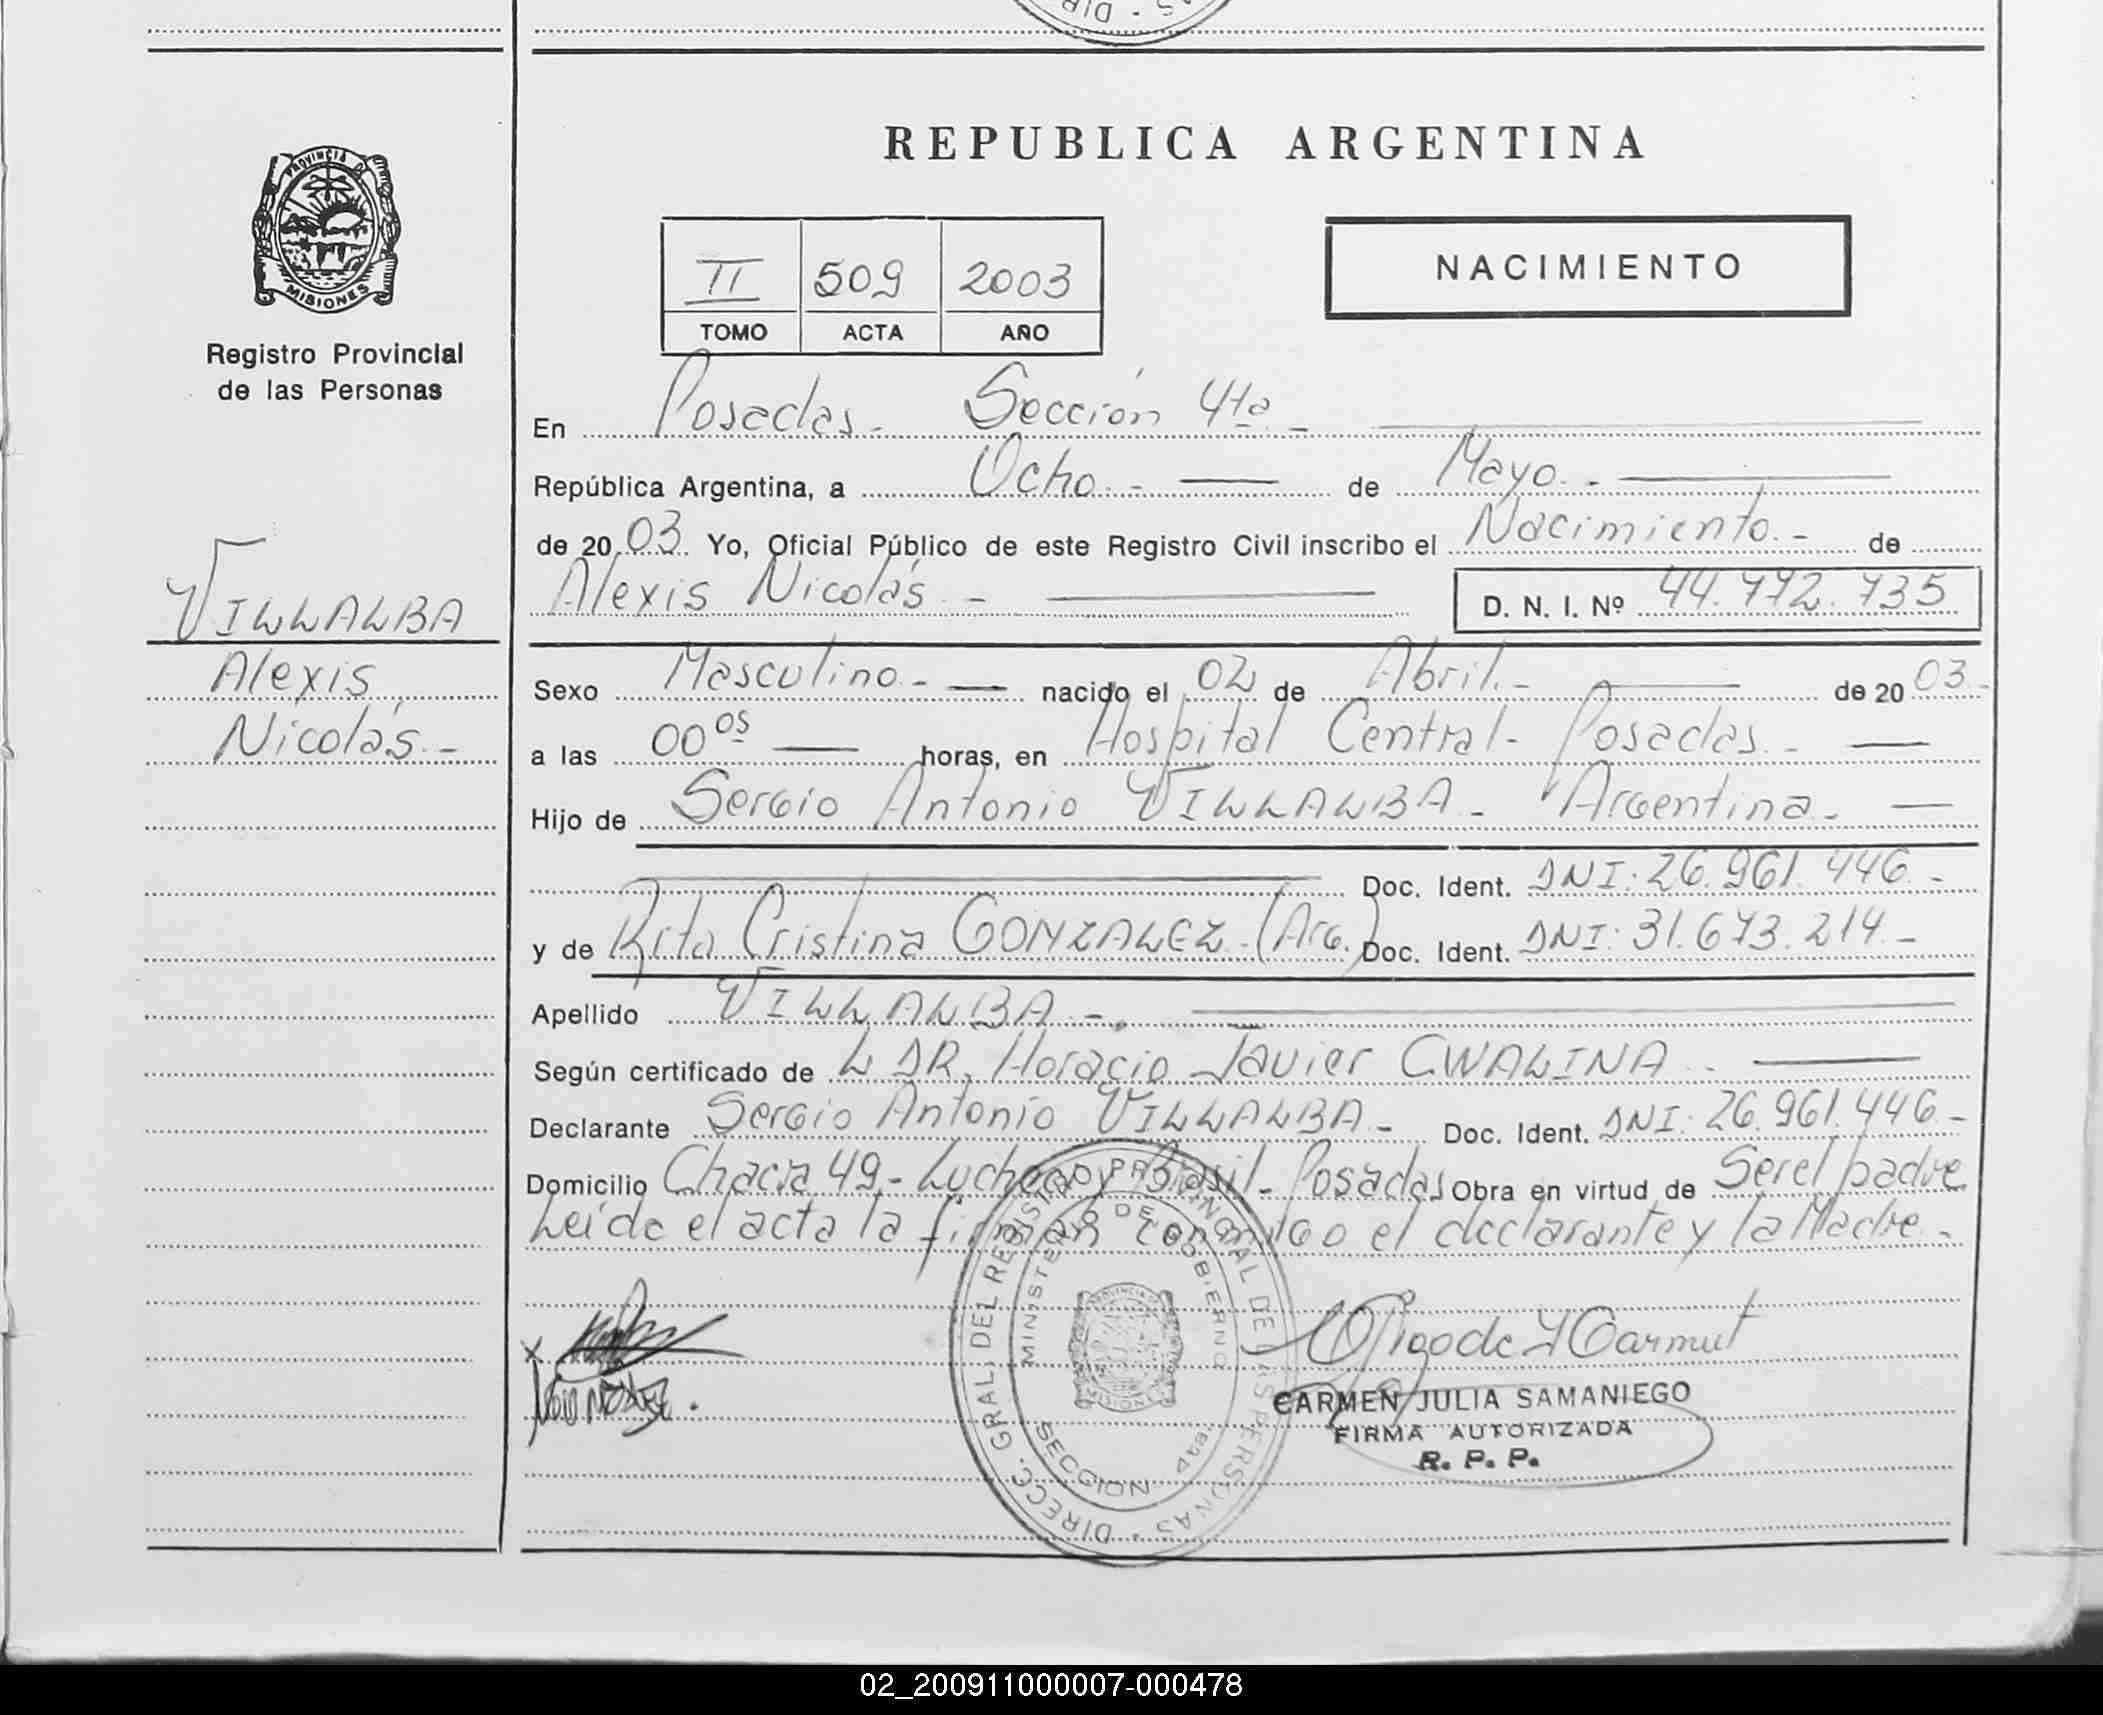 DIR - S AS -
REPUBLICA ARGENTINA
PROVINCIA DE
MISIONES
Registro Provincial
de las Personas
II 509 2003
TOMO ACTA AÑO
NACIMIENTO
En Posadas - Sección 4ta. -
República Argentina, a Ocho. - de Mayo. -
de 20 03. Yo, Oficial Público de este Registro Civil inscribo el Nacimiento. - de
Alexis Nicolás - D. N. I. Nº 44.772.735
VILLALBA
Alexis
Nicolás. -
Sexo Masculino. - nacido el 02 de Abril. - de 20 03. -
a las 00 05 horas, en Hospital Central - Posadas. -
Hijo de Sergio Antonio VILLALBA - Argentina. -
Doc. Ident. DNI: 26.961.446. -
y de Rita Cristina GONZALEZ - (Arg.) Doc. Ident. DNI: 31.673.214. -
Apellido VILLALBA - .
Según certificado de L DR. Horacio Javier CWALINA. -
Declarante Sergio Antonio VILLALBA. - Doc. Ident. DNI: 26.961.446. -
Domicilio Chacra 49 - Luchessi y Brasil - Posadas Obra en virtud de Ser el padre
Leída el acta la firman conmigo el declarante y la Madre. -
x
DIRECC. GRAL. DEL REGISTRO PROVINCIAL DE LAS PERSONAS -
MINISTERIO DE GOBIERNO
SECCION 4ta.
CARMEN JULIA SAMANIEGO
FIRMA AUTORIZADA
R. P. P.
02_200911000007-000478